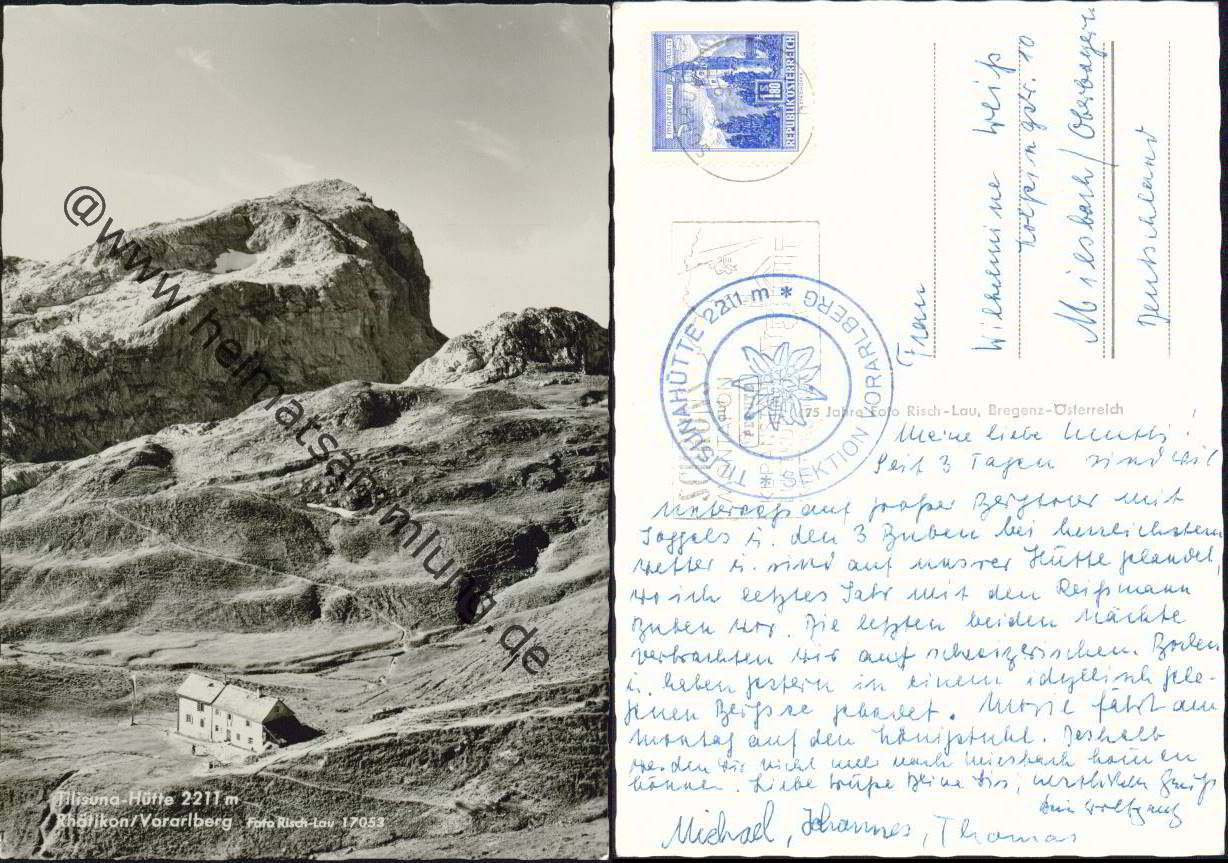 @www.heimatsammlung.de
Tilisuna-Hütte 2211 m
Rhätikon/Vorarlberg Foto Risch-Lau 17053
REPUBLIK ÖSTERREICH
1.80
TILISUNAHÜTTE 2211 m * SEKTION VORARLBERG *
75 Jahre Foto Risch-Lau, Bregenz-Österreich
Frau
Wilhelmine Weiß
Miesbach/Oberbayern
Deutschland
Meine liebe Mutti!
Seit 3 Tagen sind wir
auf großer Bergtour mit
u. den 3 Buben bei herrlichstem
Wetter u. sind auf unsrer Hütte gelandet,
wo ich letztes Jahr mit den Reißmann
Buben war. Die letzten beiden Nächte
verbrachten wir auf schweizerischem Boden
u. haben gestern in einem idyllisch gele-
genen Bergsee gebadet. fährt am
Montag auf den Königstuhl. Deshalb
werden wir nicht mehr nach Miesbach kommen
können. Liebe Grüße herzlichen Gruß
Dein Wolfgang
Michael, Johannes, Thomas